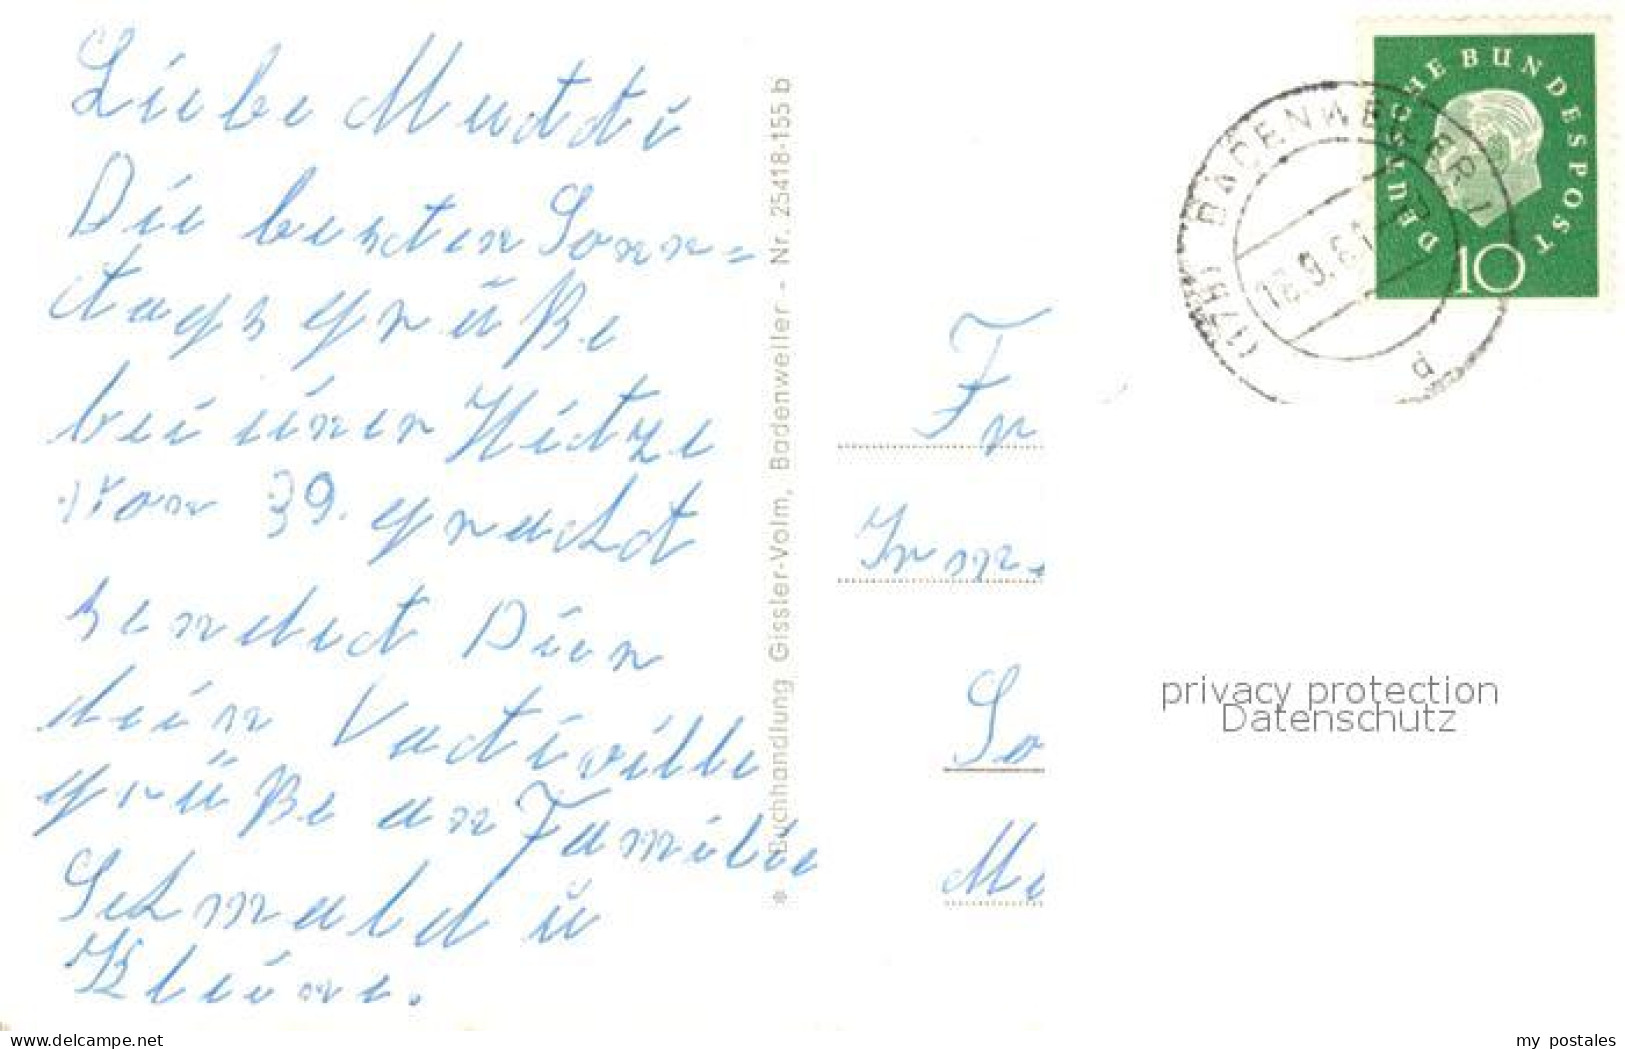 Liebe Mutti
Die besten Sonn=
tags grüße
bei einer Hitze
von 39. gracht
sendet Dier
dein
grüße an Familie
Schmald u
Kleine.
* Buchhandlung Gissler-Volm, Badenweiler - Nr. 25418-155 b
DEUTSCHE BUNDESPOST
10
(17b) BADENWEILER 1
b
Fr
So
privacy protection
Datenschutz
www.delcampe.net
my_postales